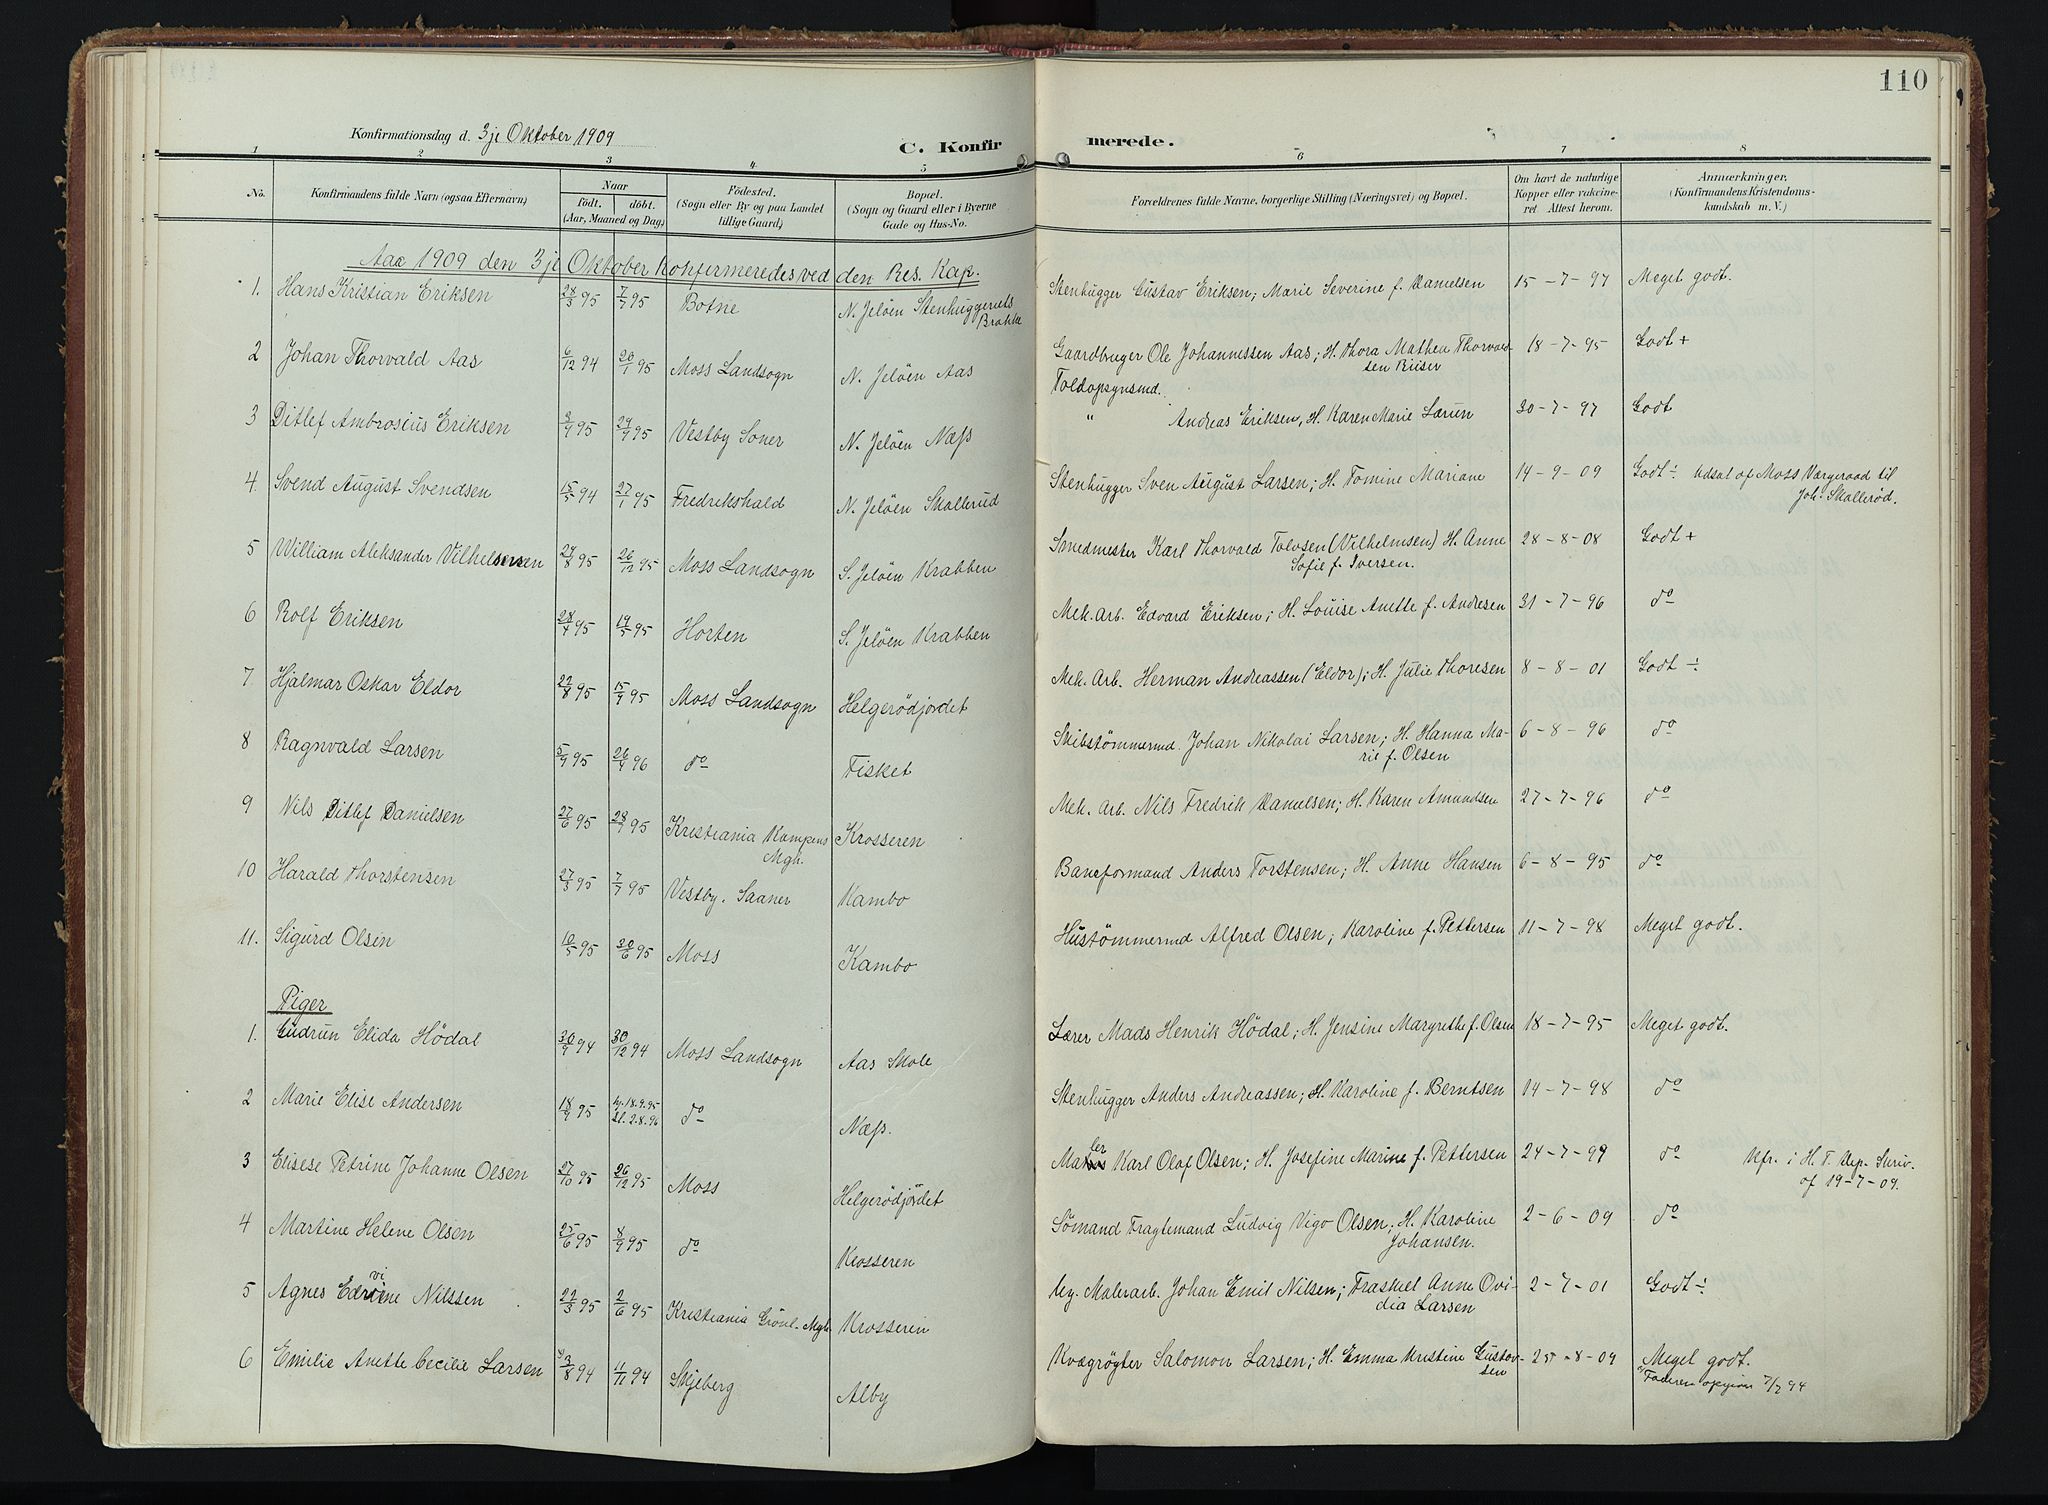 110
Konfirmationsdag d. 3je Oktober 1909
C. Konfirmerede.
1 2 3 4 5 6 7 8
No. Konfirmandens fulde Navn (ogsaa Efternavn). Naar födt. döbt. (Aar, Maaned og Dag) Födested. (Sogn eller By og paa Landet tillige Gaard) Bopæl. (Sogn og Gaard eller i Byerne Gade og Hus-No. Forældrenes fulde Navne, borgerlige Stilling (Næringsvei) og Bopæl. Om havt de naturlige Kopper eller vakcineret Attest herom. Anmærkninger. (Konfirmandens Kristendomskundskab m. V.)
Aar 1909 den 3je Oktober konfirmeredes ved den Res. Kap.
1. Hans Kristian Eriksen 28/3 95 7/7 95 Botne N. Jelöen Stenhuggernes Brakke Stenhugger Gustav Eriksen; Marie Severine f. Danielsen 15-7-97 Meget godt.
2 Johan Thorvald Aas 6/12 94 20/1 95 Moss Landsogn N. Jelöen Aas Gaardbruger Ole Johannessen Aas; H. Thora Mathea Thorvaldsen Riiser 18-7-95 Godt +
3 Ditlef Ambrosius Eriksen 3/9 95 29/9 95 Vestby Soner N. Jelöen Næss Toldopsynsmd. " Andreas Eriksen, H. Karen Marie Larun 30-7-97 Godt
4. Svend August Svendsen 15/5 94 27/1 95 Fredrikshald N. Jelöen Skallerud Stenhugger Sven August Larsen; H. Tomine Mariane 14-9-09 Godt ÷ Udsat af Moss Værgeraad til Joh. Skalleröd.
5 William Aleksander Vilhelmsen 29/8 95 26/12 95 Moss Landsogn S. Jelöen Krabben Smedmester Karl Thorvald Tolvsen (Vilhelmsen) H. Anne Sofie f. Iversen. 28-8-08 Godt +
6 Rolf Eriksen 28/4 95 19/5 95 Horten S. Jelöen Krabben Mek. Arb. Edvard Eriksen; H. Louise Anette f. Andresen 31-7-96 do
7. Hjalmar Oskar Eldor 22/8 95 15/9 95 Moss Landsogn Helgerödjordet Mek. Arb. Herman Andreassen (Eldor); H. Julie Thoresen 8-8-01 Godt ÷
8 Ragnvald Larsen 5/9 95 26/4 96 do Fisket Skibstömmermd. Johan Nikolai Larsen; H. Hanna Marie f. Olsen 6-8-96 do
9 Nils Ditlef Danielsen 27/6 95 28/7 95 Kristiania Kampens Mgh. Krosseren Mek. Arb. Nils Fredrik Danielsen; H. Karen Amundsen 27-7-96 do
10 Harald Thorstensen 27/3 95 7/7 95 Vestby. Saaner Kambo Baneformand Anders Torstensen; H. Anne Hansen 6-8-95 do
11. Sigurd Olsen 10/5 95 30/6 95 Moss Kambo Hustömmermd Alfred Olsen; Karoline f. Pettersen 11-7-98 Meget godt.
Piger
1. Gudrun Elida Hödal 30/9 94 30/12 94 Moss Landsogn Aas Skole Lærer Mads Henrik Hödal; H. Jensine Margrethe f. Olsen 18-7-95 Meget godt.
2 Marie Elise Andersen 18/9 95 hj. 18.9.95 st. 2.8.96 do Næss. Stenhugger Anders Andreassen; H. Karoline f. Berntsen 14-7-98 do
3 Elisese Petrine Johanne Olsen 27/10 95 26/12 95 Moss Helgerödjordet Maler Karl Olaf Olsen; H. Josefine Marine f. Pettersen 24-7-99 do Ufr. i H. T. Dep. Skriv. af 19-7-09.
4 Martine Helene Olsen 25/6 95 8/9 95 do Krosseren Sömand Fragtemand Ludvig Vigo Olsen; H. Karoline Johansen. 2-6-09 do
5 Agnes Edvine Nilssen 22/3 95 2/6 95 Kristiania Grönl. Mgh. Krosseren Ug. Malerarb. Johan Emil Nilsen; Fraskilt Anne Ovidia Larsen 2-7-01 Godt ÷
6 Emilie Anette Cecilie Larsen 3/8 94 11/11 94 Skjeberg Alby Kvægrögter Salomon Larsen; H. Emma Kristine Gustavsen 25-8-09 Meget godt. Faderen opgiver 7/7 94